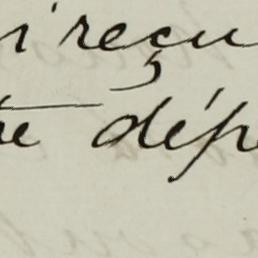 i reçu
te dépe